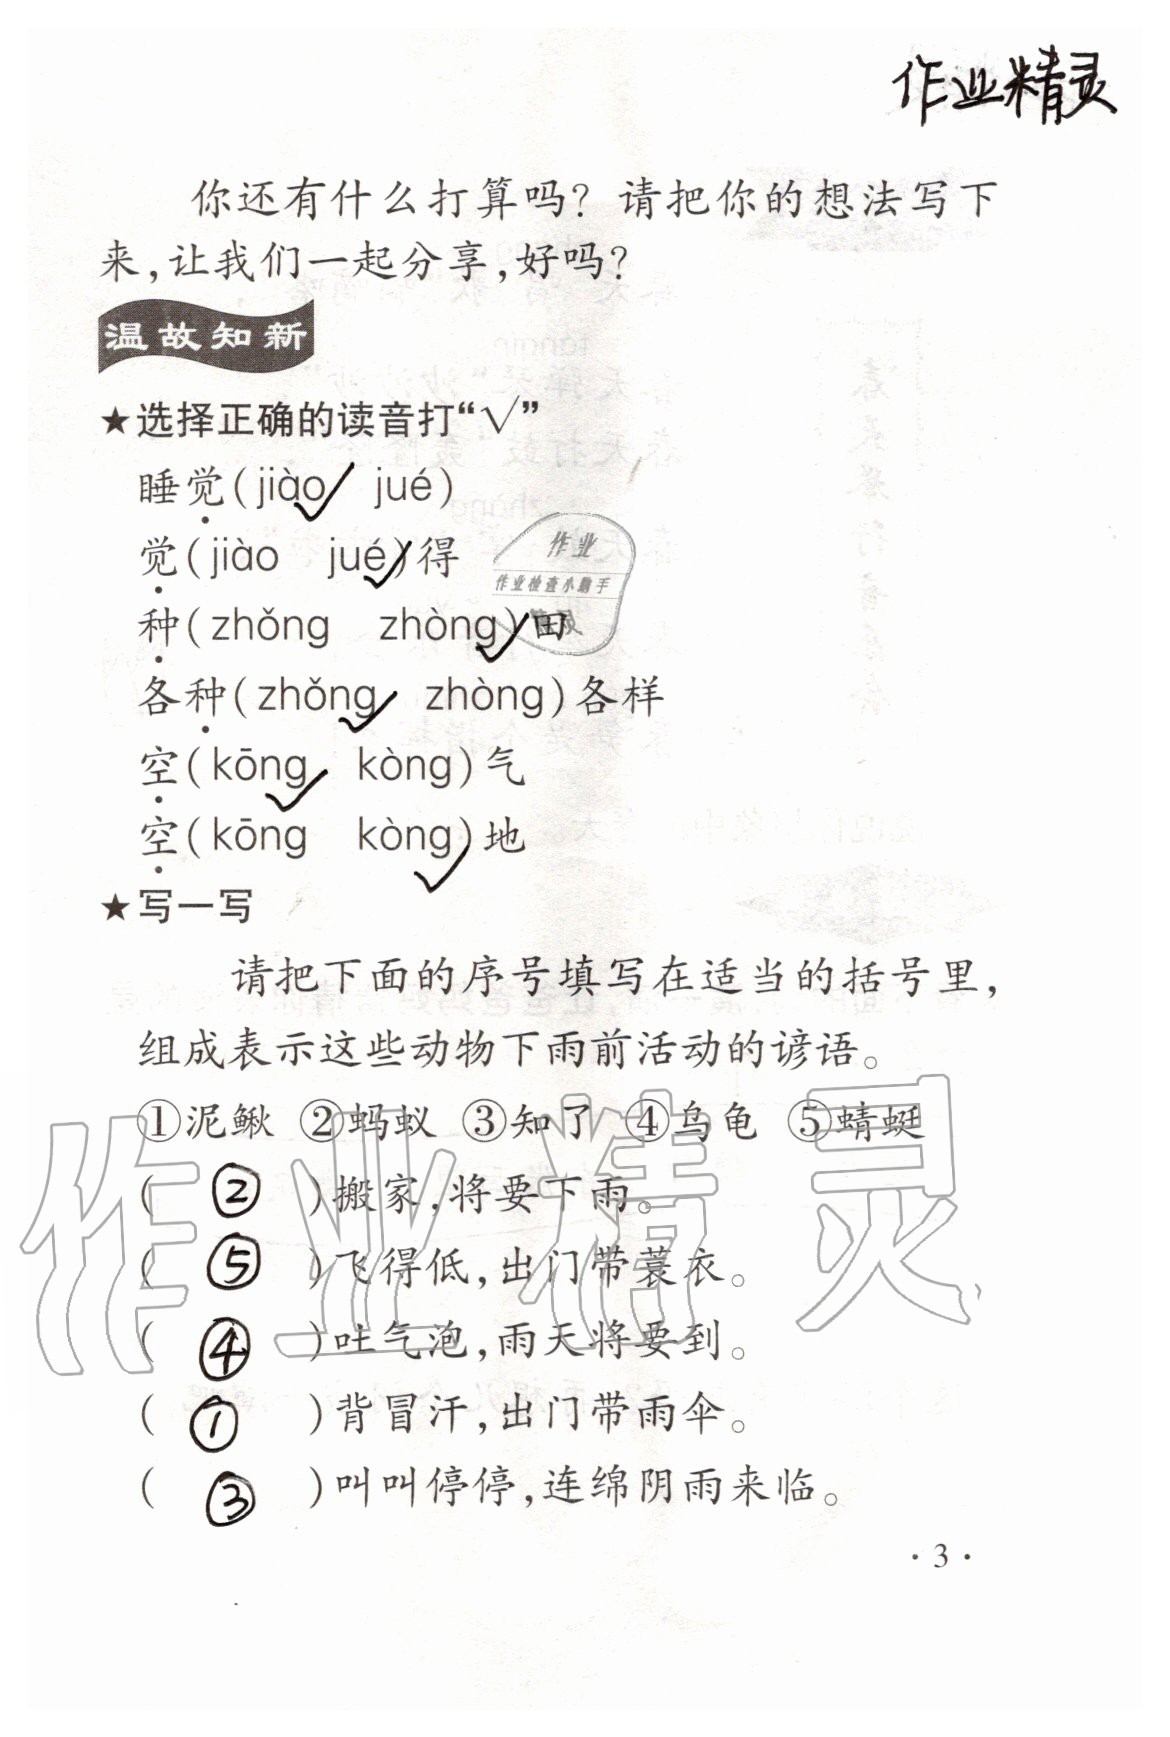 作业精灵
你还有什么打算吗？请把你的想法写下
来，让我们一起分享，好吗？
温故知新
★选择正确的读音打“√”
睡觉（jiào✓ jué）
觉（jiào jué✓）得
种（zhǒng zhòng✓）田
各种（zhǒng✓ zhòng）各样
空（kōng✓ kòng）气
空（kōng kòng✓）地
★写一写
请把下面的序号填写在适当的括号里，
组成表示这些动物下雨前活动的谚语。
①泥鳅 ②蚂蚁 ③知了 ④乌龟 ⑤蜻蜓
（ ② ）搬家，将要下雨。
（ ⑤ ）飞得低，出门带蓑衣。
（ ④ ）吐气泡，雨天将要到。
（ ① ）背冒汗，出门带雨伞。
（ ③ ）叫叫停停，连绵阴雨来临。
·3·
作业
作业检查小助手
作业精灵